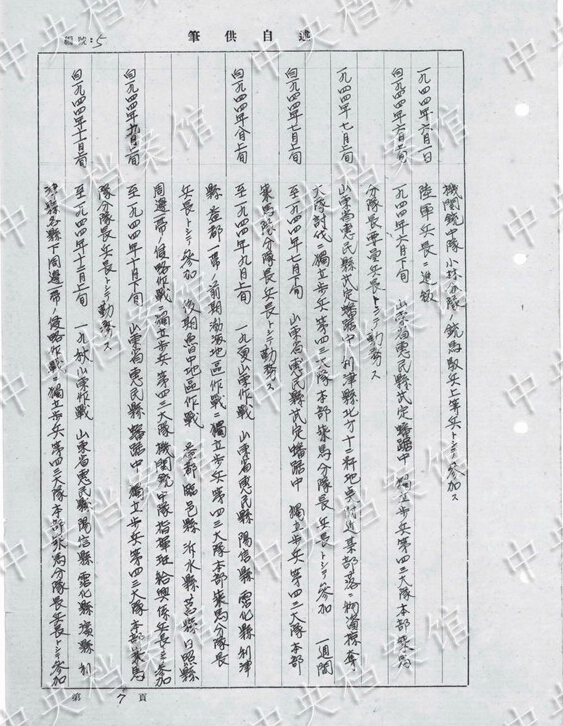 筆供自述
機関銃中隊小林分隊ノ銃馬馭兵上等兵トシテ参加ス
一九四四年六月一日 陸軍兵長ニ進級
自一九四四年六月上旬 至一九四四年六月下旬 山東省恵民縣武定蟠踞中 独立歩兵第四三大隊本部乗馬
分隊長要員兵長トシテ勤務ス
一九四四年七月上旬 山東省恵民縣武定蟠踞中 利津縣北方十二粁地点附近某部落ニ物資掠奪
大隊討伐ニ独立歩兵第四三大隊本部乗馬分隊長兵長トシテ参加 一週間
自一九四四年七月上旬 至一九四四年七月下旬 山東省恵民縣武定蟠踞中 独立歩兵第四三大隊本部
乗馬隊分隊長兵長トシテ勤務ス
自一九四四年八月上旬 至一九四四年九月上旬 一九夏山東作戦 山東省恵民縣 陽信縣 霑化縣 利津
縣 益都一帯ノ前期渤海地區作戦ニ独立歩兵第四三大隊本部乗馬分隊長
兵長トシテ参加 後期魯中地區作戦 益都 臨邑縣 沂水縣 莒縣 日照縣
周邊一帯ノ侵略作戦ニ独立歩兵第四三大隊機関銃中隊指揮班給與係兵長トシテ参加
自一九四四年九月上旬 至一九四四年十月下旬 山東省恵民縣蟠踞中 独立歩兵第四三大隊本部乗馬
隊分隊長兵長トシテ勤務ス
自一九四四年十一月上旬 至一九四四年十二月上旬 一九秋山東作戦 山東省恵民縣 陽信縣 霑化縣 濱縣 利
津縣各縣下周邊一帯ノ侵略作戦ニ独立歩兵第四三大隊本部乗馬分隊長兵長トシテ参加
第 7 頁
編號：5
中央档案馆